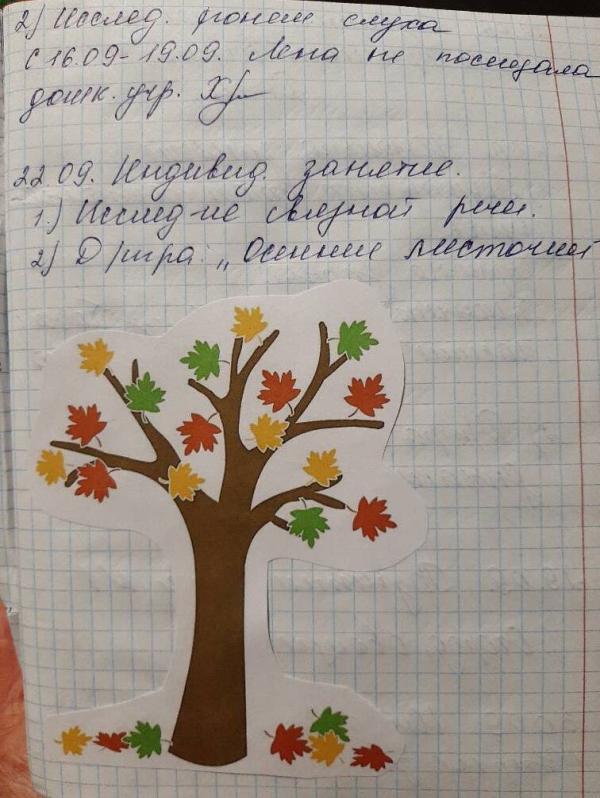 2) Исслед. фонем. слуха
с 16.09-19.09. Лена не посещала
дошк. учр.
22.09. Индивид. занятие.
1.) Исслед-ие связной речи.
2) Д/игра: „Осенние листочки"